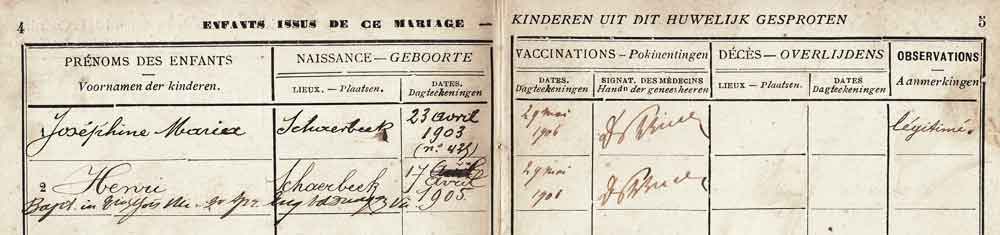 4 ENFANTS ISSUS DE CE MARIAGE — KINDEREN UIT DIT HUWELIJK GESPROTEN 5
PRÉNOMS DES ENFANTS
Voornamen der kinderen.
NAISSANCE — GEBOORTE
LIEUX. — Plaatsen.
DATES.
Dagteekeningen
VACCINATIONS — Pokinentingen
DATES.
Dagteekeningen
SIGNAT. DES MÉDECINS
Handn der geneesheeren
DÉCÈS — OVERLIJDENS
LIEUX — Plaatsen.
DATES
Dagteekeningen
OBSERVATIONS
Aanmerkingen
Joséphine Maria
Schaerbeek
23 avril
1903
(n° 435)
29 mai
1906
légitimée
2 Henri
Schaerbeek
17 avril
1905
29 mai
1906
Bapt. in